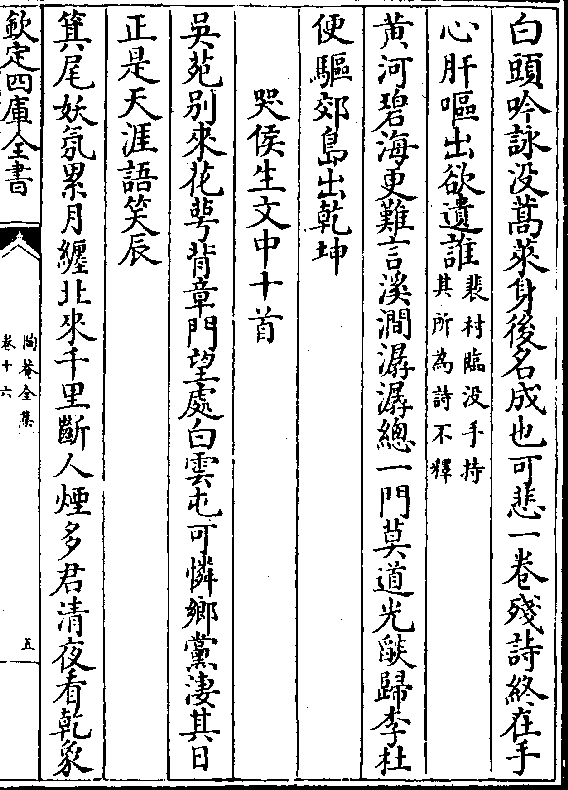 白頭吟詠没蒿萊身後名成也可悲一卷殘詩終在手
心肝嘔出欲遺誰裴村臨没手持其所為詩不釋
黄河碧海更難言溪澗潺潺總一門莫道光燄歸李杜
便驅郊島出乾坤
哭侯生文中十首
吳苑别來花萼背章門望處白雲屯可憐鄉黨淒其日
正是天涯語笑辰
箕尾妖氛累月纒北來千里斷人煙多君清夜看乾象
欽定四庫全書
陶菴全集
卷十六
五